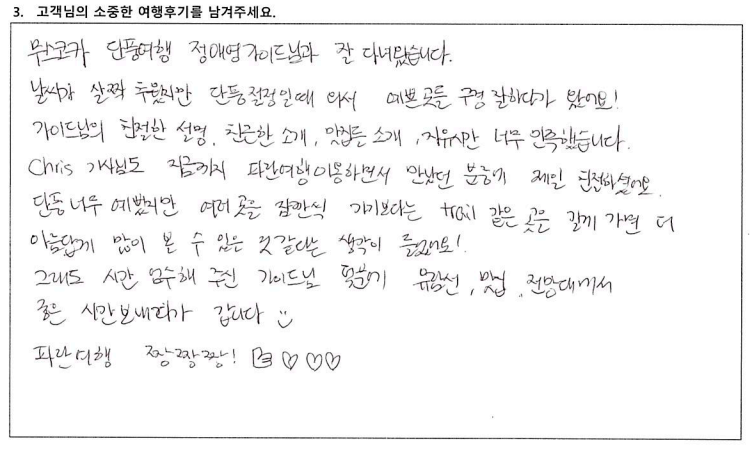 3. 고객님의 소중한 여행후기를 남겨주세요.
무스코카 단풍여행 정애영가이드님과 잘 다녀왔습니다.
날씨가 살짝 추웠지만 단풍절정일때 와서 예쁜곳들 구경 잘하다가 왔어요!
가이드님의 친절한 설명, 친근한 소개, 맛집들 소개, 자유시간 너무 만족했습니다.
Chris 기사님도 지금까지 파란여행이용하면서 만났던 분중에 제일 친절하셨어요.
단풍 너무 예뻤지만 여러곳을 잠깐식 가기보다는 trail 같은 곳은 길게 가면 더
아름답게 많이 본 수 있은 것 같다는 생각이 들었어요!
그래도 시간 엄수해 주신 가이드님 덕분에 유람선, 맛집, 전망대까서
좋은 시간보내다가 갑니다
파란여행 짱짱짱! ♡♡♡